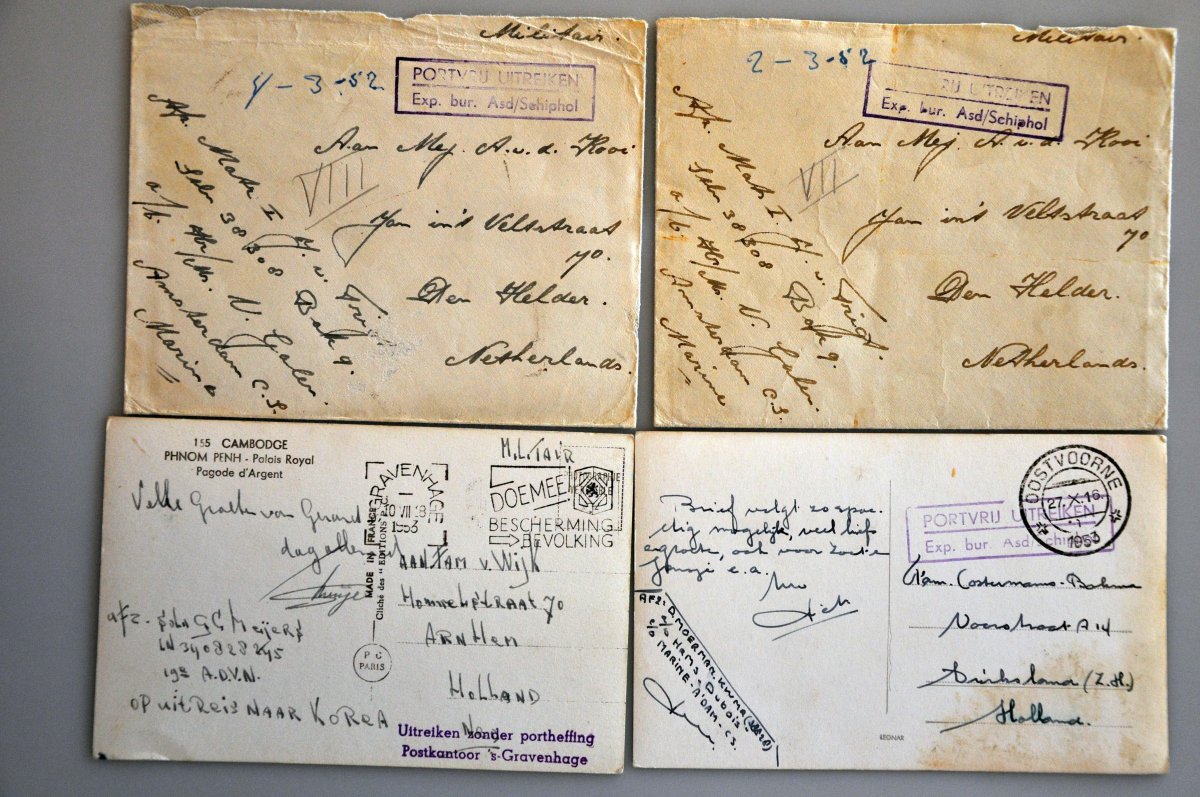 Militair.
4-3-52
PORTVRIJ UITREIKEN
Exp. bur. Asd/Schiphol
Aan Mej. A.v.d. Kooi
VIII
Jan in't Veltstraat
70.
Den Helder.
Netherlands.
Afz. Matr I J. v. Trigt
38308 Bak 9.
a/b. Hr/Ms. V. Galen.
Amsterdam C.S.
Marine
Militair.
2-3-52
RIJ UITREIKEN
Exp. bur. Asd/Schiphol
Aan Mej. A.v.d. Kooi
VII
Jan in't Veltstraat
70
Den Helder.
Netherlands.
Afz. Matr I. J. v. Trigt.
38308 Bak 9.
a/b. Hr/Ms. V. Galen.
Amsterdam C.S.
Marine
155 CAMBODGE
PHNOM PENH - Palais Royal
Pagode d'Argent
MILITAIR
GRAVENHAGE
10 VII 18
1953
DOE MEE
BESCHERMING
BEVOLKING
MADE IN FRANCE
Cliché des "EDITIONS P.
P C
PARIS
Velle Groeten van Gerard
dag allen
AAN TAM v. WIJK
70
ARNHEM
HOLLAND
afz. G.C. MEIJERS
390828245
A.D.V.N.
OP UITREIS NAAR KOREA
Uitreiken zonder portheffing
Postkantoor 's-Gravenhage
OOSTVOORNE
27.X.16
1953
PORTVRIJ UITREIKEN
Exp. bur. Asd/Schiphol
Brief volgt zo spoe-
dig mogelijk, veel liefs
en groeten, ook voor
e.a.
Dick
AFZ: D. MOERMAN. KWMR
a/b HR MS. DUBOIS
MARINE-A'DAM-C.S.
Fam. Costermans-Bohme
Voorstraat A 14
Dirksland (Z.H.)
Holland.
LEONAR